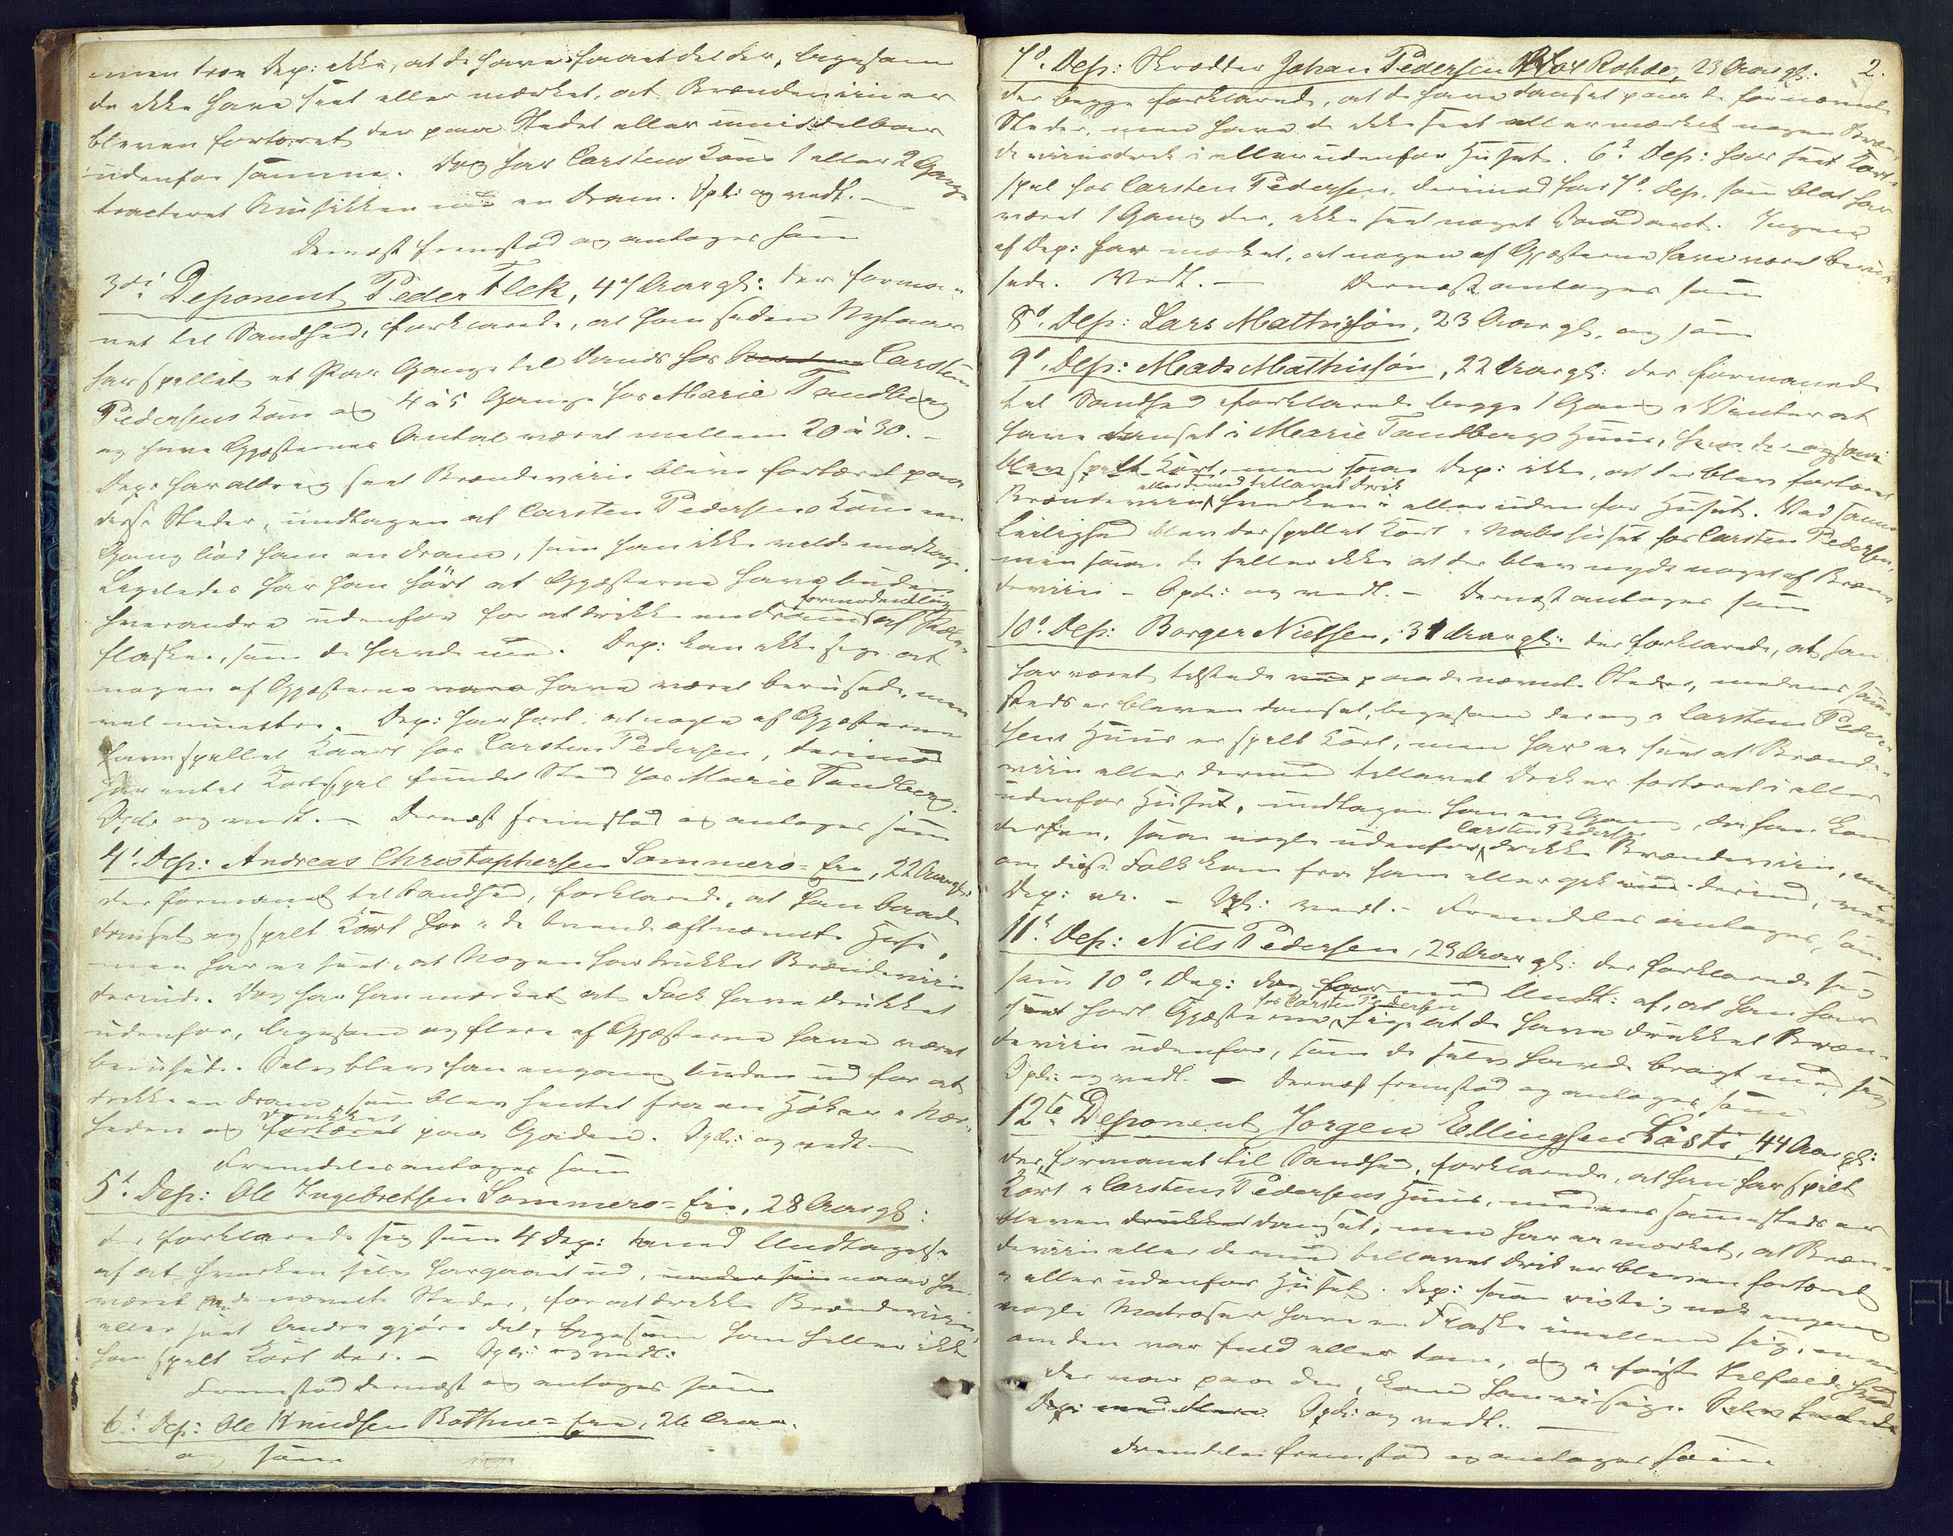 men troe Dep: ikke, at de have faaet det der, ligesom
de ikke have seet eller mærket, at Brændeviin er
bleven fortæret der paa Stedet eller umiddelbar
udenfor samme. Dog har Carstens Kone 1 eller 2 Gange
tracteret Musikken med en Dram. Opl: og vedt. —
Dernæst fremstod og antoges som
3die Deponent Peder Flek, 47 Aar gl: der forma-
net til Sandhed, forklarede, at han siden Nytaar
har spillet et Par Gange til Dands hos Carsten
Pedersens Kone og 4 à 5 Gange hos Marie Tandberg
og have Gjæsternes Antal været mellem 20 à 30. —
Dep: har aldrig seet Brændeviin blive fortæret paa
disse Steder, undtagen at Carsten Pedersens Kone een
Gang bød ham en Dram, som han ikke vilde modtage.
Ligeledes har han hørt at Gjæsterne have buden
hverandre udenfor for at drikke en Dram formodentlig af Pæle-
flasker, som de havde med. Dep: kan ikke sige at
nogen af Gjæsterne have været berusede, men
vel muntre. Dep: har hørt, at nogle af Gjæsterne
have spillet Kaart hos Carsten Pedersen, derimod
har intet Kortspil fundet Sted hos Marie Tandberg.
Opl: og vedt. — Dernæst fremstod og antoges som
4d. Dep: Andreas Christophersen Sommero-Eie, 22 Aar gl:
der formanet til Sandhed, forklarede, at han baade
danset og spilt Kort har i de tvende oftnævnte Huse,
men har ei seet, at Nogen har drukket Brændeviin
derinde. Dog har han mærket at Folk have drukket
udenfor, ligesom og flere af Gjæsterne have været
berusede. Selv blev han engang buden ud for at
drikke en Dram, som blev hentet fra en Høker i Nær-
heden og fortæret drukket paa Gaden. Opl: og vedt. —
Fremdeles antoges som
5t. Dep: Ole Ingebretsen Sommero-Eie, 28 Aar gl:
der forklarede sig som 4 Dep: med Undtagelse
af at hverken selv har gaaet ud, naar han
været paa de nævnte Steder, for at drikke Brændeviin
eller seet Andre gjøre det, ligesom han heller ikke
har spilt Kort der. — Opl: og vedt:
Fremstod dernæst og antoges som
6t. Dep: Ole Knudsen Bothne-Eie, 26 Aar.
og som
2.
7d. Dep: Skrædder Johan Pedersen Rohde, 23 Aar gl.
der begge forklarede, at de have danset paa de fornævnte
Steder, men have de ikke seet eller mærket nogen Bræn-
deviinsdrik i eller udenfor Huset. 6t. Dep: har seet Kort-
spil hos Carsten Pedersen, derimod har 7d. Dep. som blot har
været 1 Gang der, ikke seet noget Saadant. Ingen
af Dep: har mærket, at nogen af Gjæsterne have været beru-
sede. Vedt. — Dernæst antoges som
8d. Dep: Lars Mathisøn, 23 Aar gl, og som
9d. Dep: Mads Mathissøn, 22 Aar gl: der formanede
til Sandhed forklarede begge 1 Gang i Vinter at
have danset i Marie Tandbergs Huus, hvor der ogsaa
blev spilt Kort, men saae Dep: ikke, at der blev fortæret
Brændeviin eller dermed tillavet Drik hverken i eller uden for Huset. Ved samme
Leilighed blev der spillet Kort i Nabohuset hos Carsten Pedersen,
men saae de heller ikke at der blev nydt noget af Bræn-
deviin — Opl: og vedt. — Dernæst antoges som
10d. Dep: Borger Nielsen, 31 Aar gl: der forklarede, at han
har været tilstede paa de nævnte Steder, medens sam-
steds er bleven danset, ligesom der og i Carsten Peder-
sens Huus er spilt Kort, men har ei seet at Brænde-
viin eller dermed tillavet Drik er fortæret i eller
udenfor Huset, undtagen han en Gang, da han kom
derhen, saae nogle udenfor Carsten Pedersen drikke Brændeviin, men
om disse Folk kom fra ham eller gik derind, veed
Dep: ei. — Opl: vedt. — Fremdeles antoges, som
11t. Dep: Nils Pedersen, 29 Aar gl: der forklarede sig
som 10d. Dep: med Undt: af, at han har
hørt Gjæsterne hos Carsten Pedersen sige at de have drukket Bræn-
deviin udenfor, som de selv havde bragt med sig
Opl: og vedt. — Dernæst fremstod og antoges som
12te Deponent Jørgen Ellingsen Løste, 44 Aar gl:
der, formanet til Sandhed, forklarede, at han har spilt
Kort i Carsten Pedersens Huus, medens sammesteds er
bleven danset, men har ei mærket, at Bræn-
deviin eller dermed tillavet Drik er bleven fortæret
i eller udenfor Huset. Dep: saae rigtig nok engang
nogle Matroser have en Flaske imellem sig, men
om den var fuld eller tom, og i første Tilfælde hvad
der var paa den, kan han ei sige.
Opl: og vedt. —
Fremdeles fremstod og antoges som